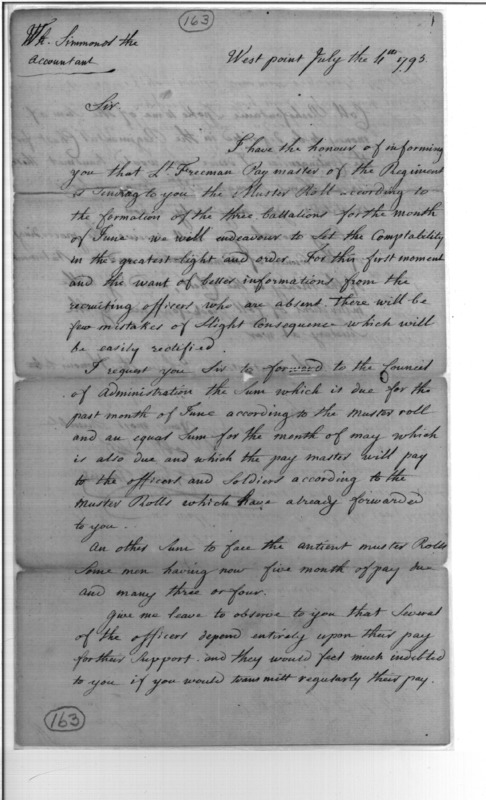 163
Wm. Simmonds the
accountant
West point July the 4th 1795.
Sir.
I have the honour of informing
you that Lt Freeman Paymaster of the Regiment
is sending to you the Muster Roll according to
the formation of the three battalions for the month
of June we will endeavour to set the Comptability
in the greatest light and order. For this first moment
and the want of better informations from the
recruiting officers who are absent. There will be
few mistakes of slight Consequence which will
be easily rectified.
I request you Sir to forward to the Council
of Administration the Sum which is due for the
past month of June according to the muster roll
and an equal Sum for the month of may which
is also due and which the pay master will pay
to the officers and Soldiers according to the
Muster Rolls which have already forwarded
to you.
An other Sum to face the antient muster Rolls
Some men having now five month of pay due
and many three or four.
Give me leave to observe to you that Several
of the officers depend entirely upon their pay
for their Support. and they would feel much indebted
to you if you would transmitt regularly their pay.
163